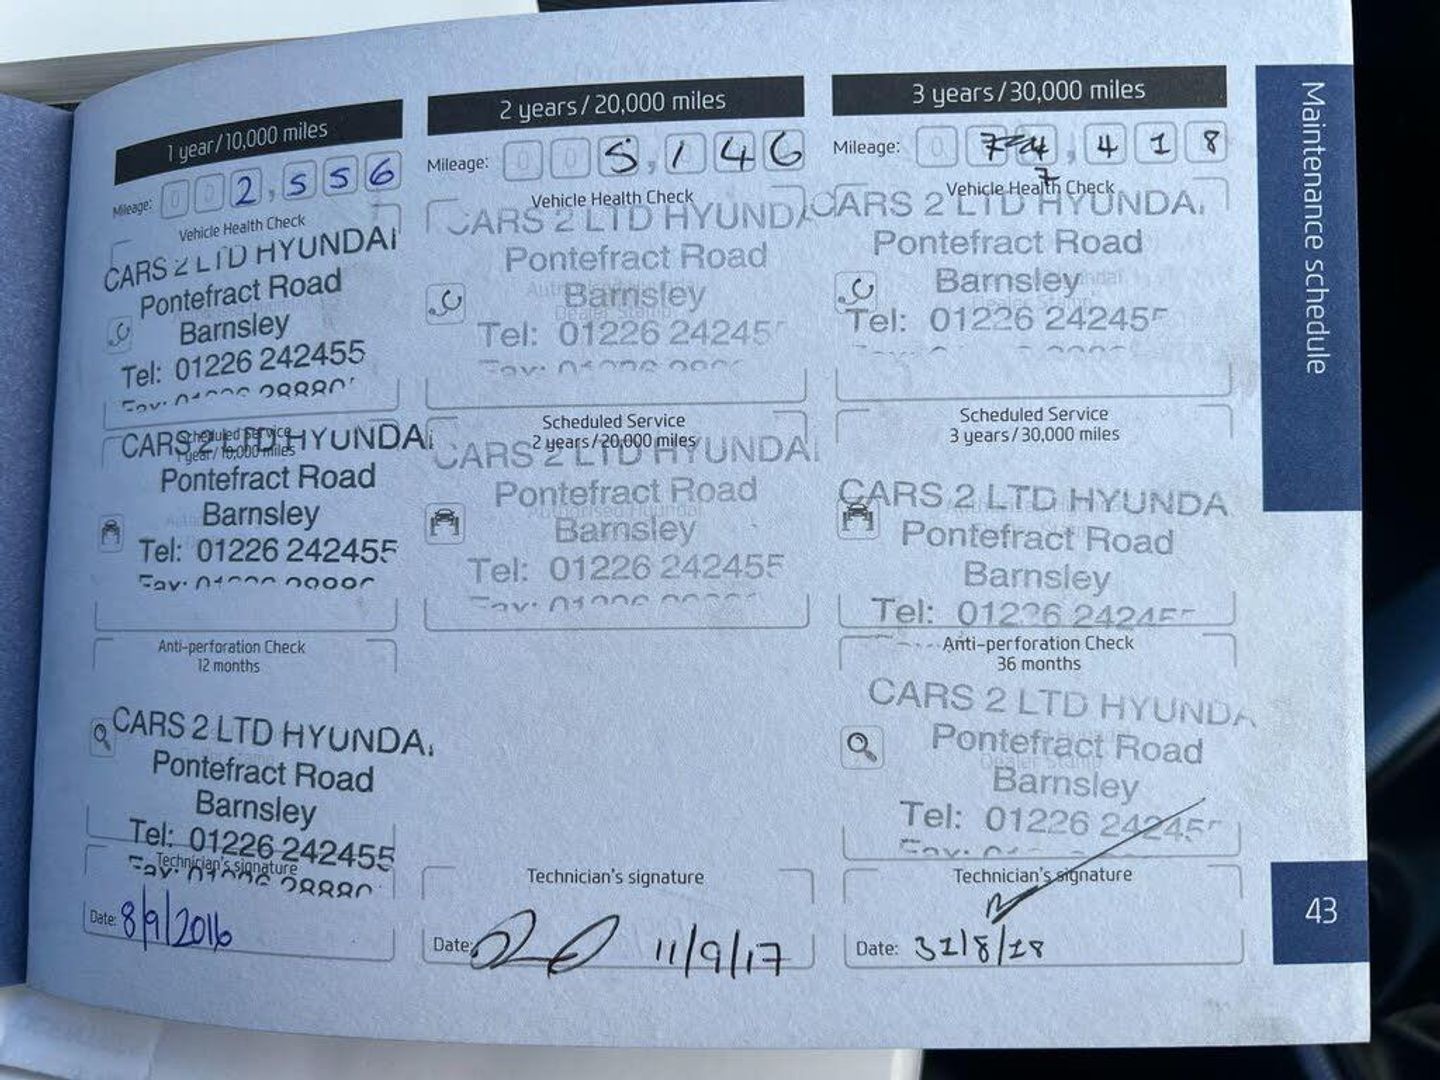 1 year/10,000 miles
Mileage: 002,556
Vehicle Health Check
CARS 2 LTD HYUNDAI
Pontefract Road
Barnsley
Tel: 01226 242455
Scheduled Service
1 year/10,000 miles
CARS 2 LTD HYUNDAI
Pontefract Road
Barnsley
Tel: 01226 242455
Anti-perforation Check
12 months
CARS 2 LTD HYUNDA
Pontefract Road
Barnsley
Tel: 01226 242455
Technician's signature
Date: 8/9/2016
2 years/20,000 miles
Mileage: 005,146
Vehicle Health Check
CARS 2 LTD HYUNDA
Pontefract Road
Barnsley
Tel: 01226 24245
Scheduled Service
2 years/20,000 miles
CARS 2 LTD HYUNDAI
Pontefract Road
Barnsley
Tel: 01226 242455
Technician's signature
Date: 11/9/17
3 years/30,000 miles
Mileage: 0 7,418
Vehicle Health Check
CARS 2 LTD HYUNDA
Pontefract Road
Barnsley
Tel: 01226 24245
Scheduled Service
3 years/30,000 miles
CARS 2 LTD HYUNDA
Pontefract Road
Barnsley
Tel: 01226 24245
Anti-perforation Check
36 months
CARS 2 LTD HYUNDA
Pontefract Road
Barnsley
Tel: 01226 24245
Technician's signature
Date: 31/8/18
Maintenance schedule
43